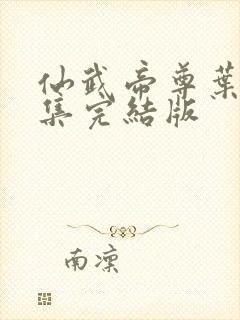 仙武帝尊葉
集完結版
南凜